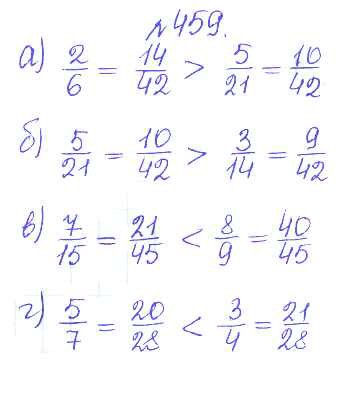 №459.
а) 2/6 = 14/42 > 5/21 = 10/42
б) 5/21 = 10/42 > 3/14 = 9/42
в) 7/15 = 21/45 < 8/9 = 40/45
г) 5/7 = 20/28 < 3/4 = 21/28